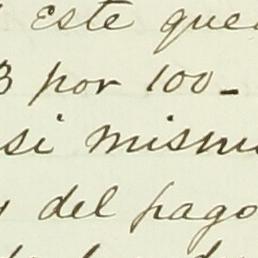 Este que
3 por 100_
si mismo
del pago